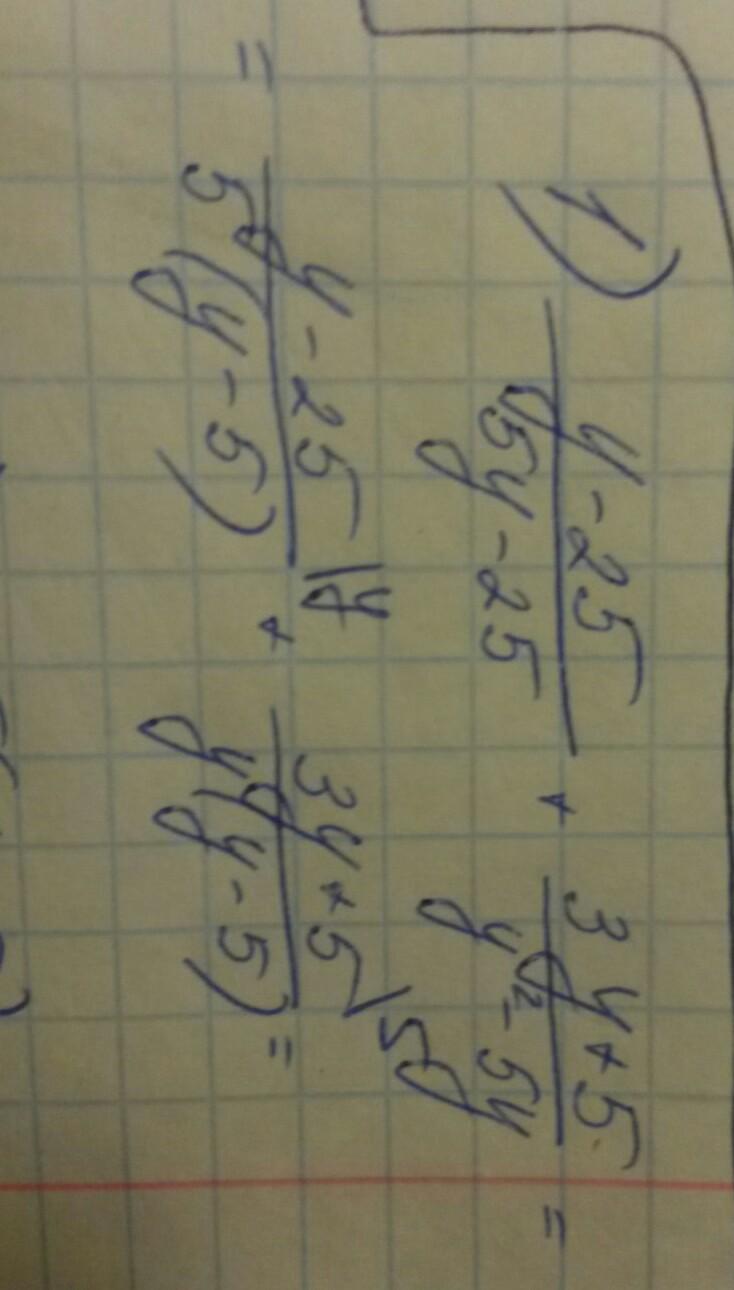 1) y - 25 / 5y - 25 + 3y + 5 / y² - 5y =
= y - 25 \y / 5(y - 5) + 3y + 5 \5 / y(y - 5) =